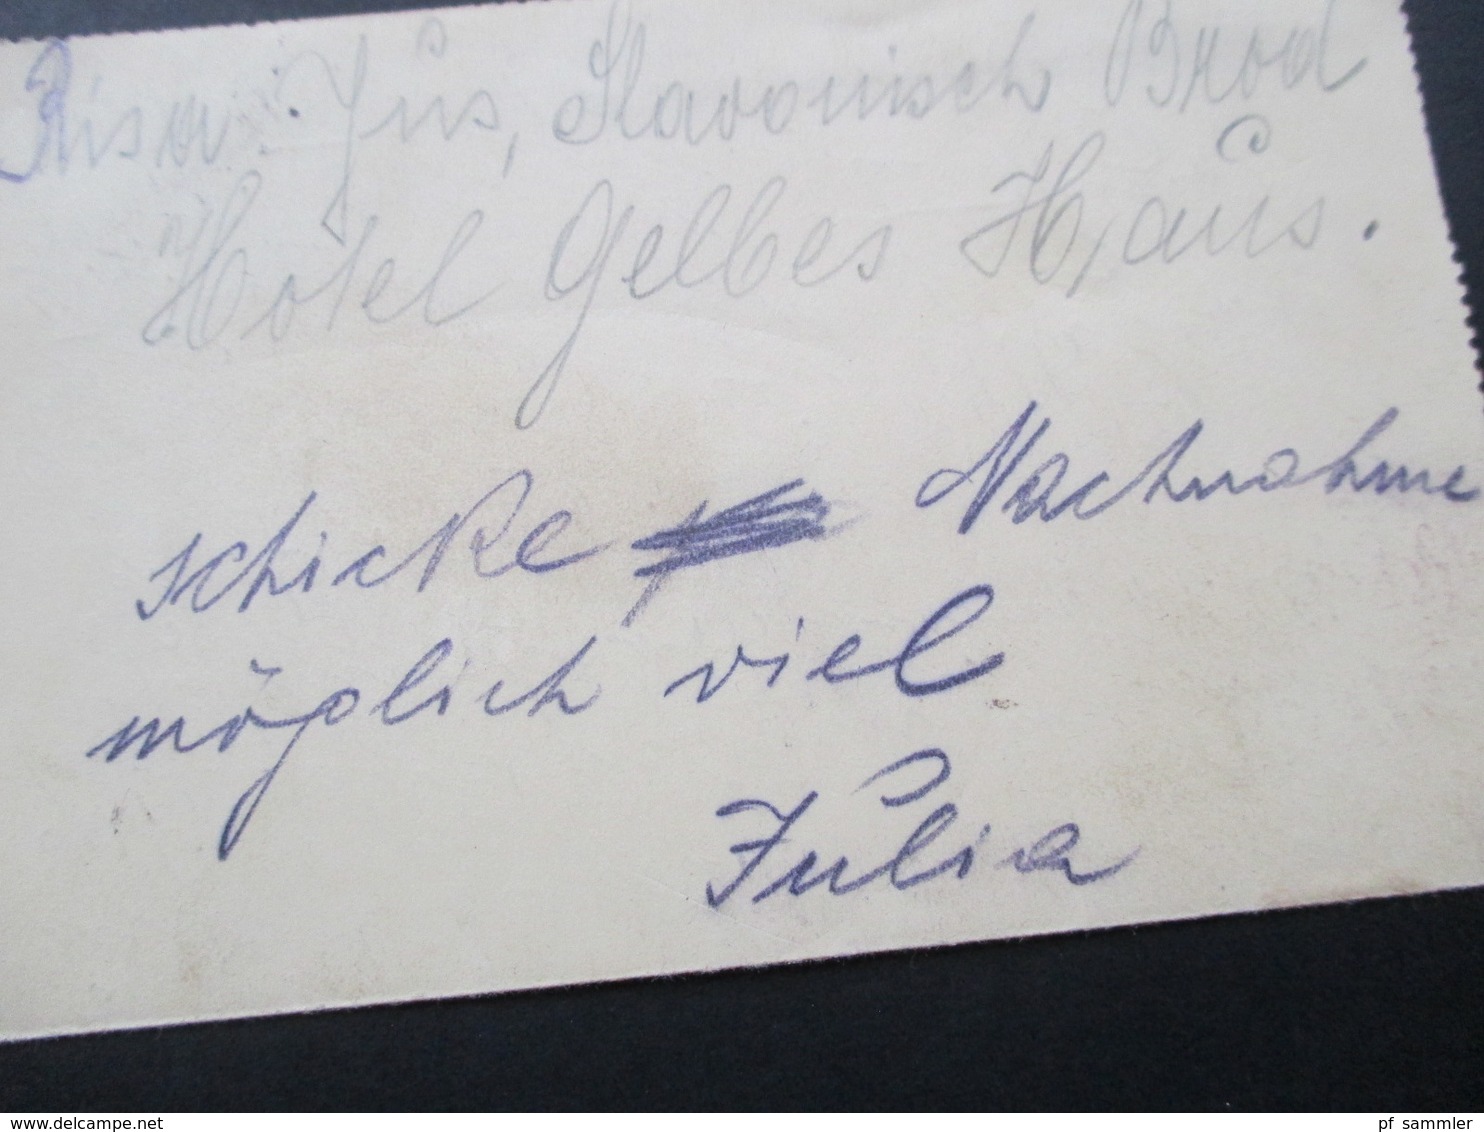 Jus, Slavonisch Brod
Hotel Gelbes Haus.
schicke Nachnahme
möglich viel
Julia
www.delcampe.net
pf_sammler